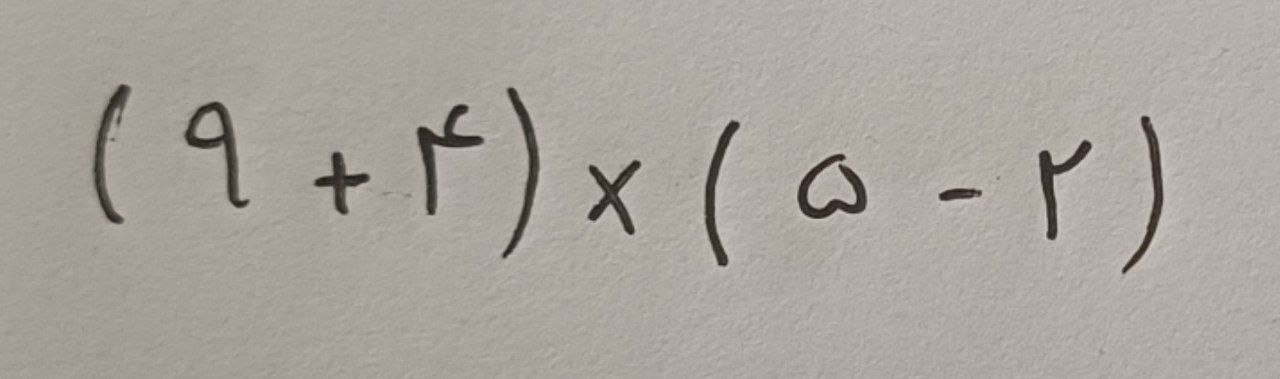 (۹ + ۴) × (۵ - ۲)